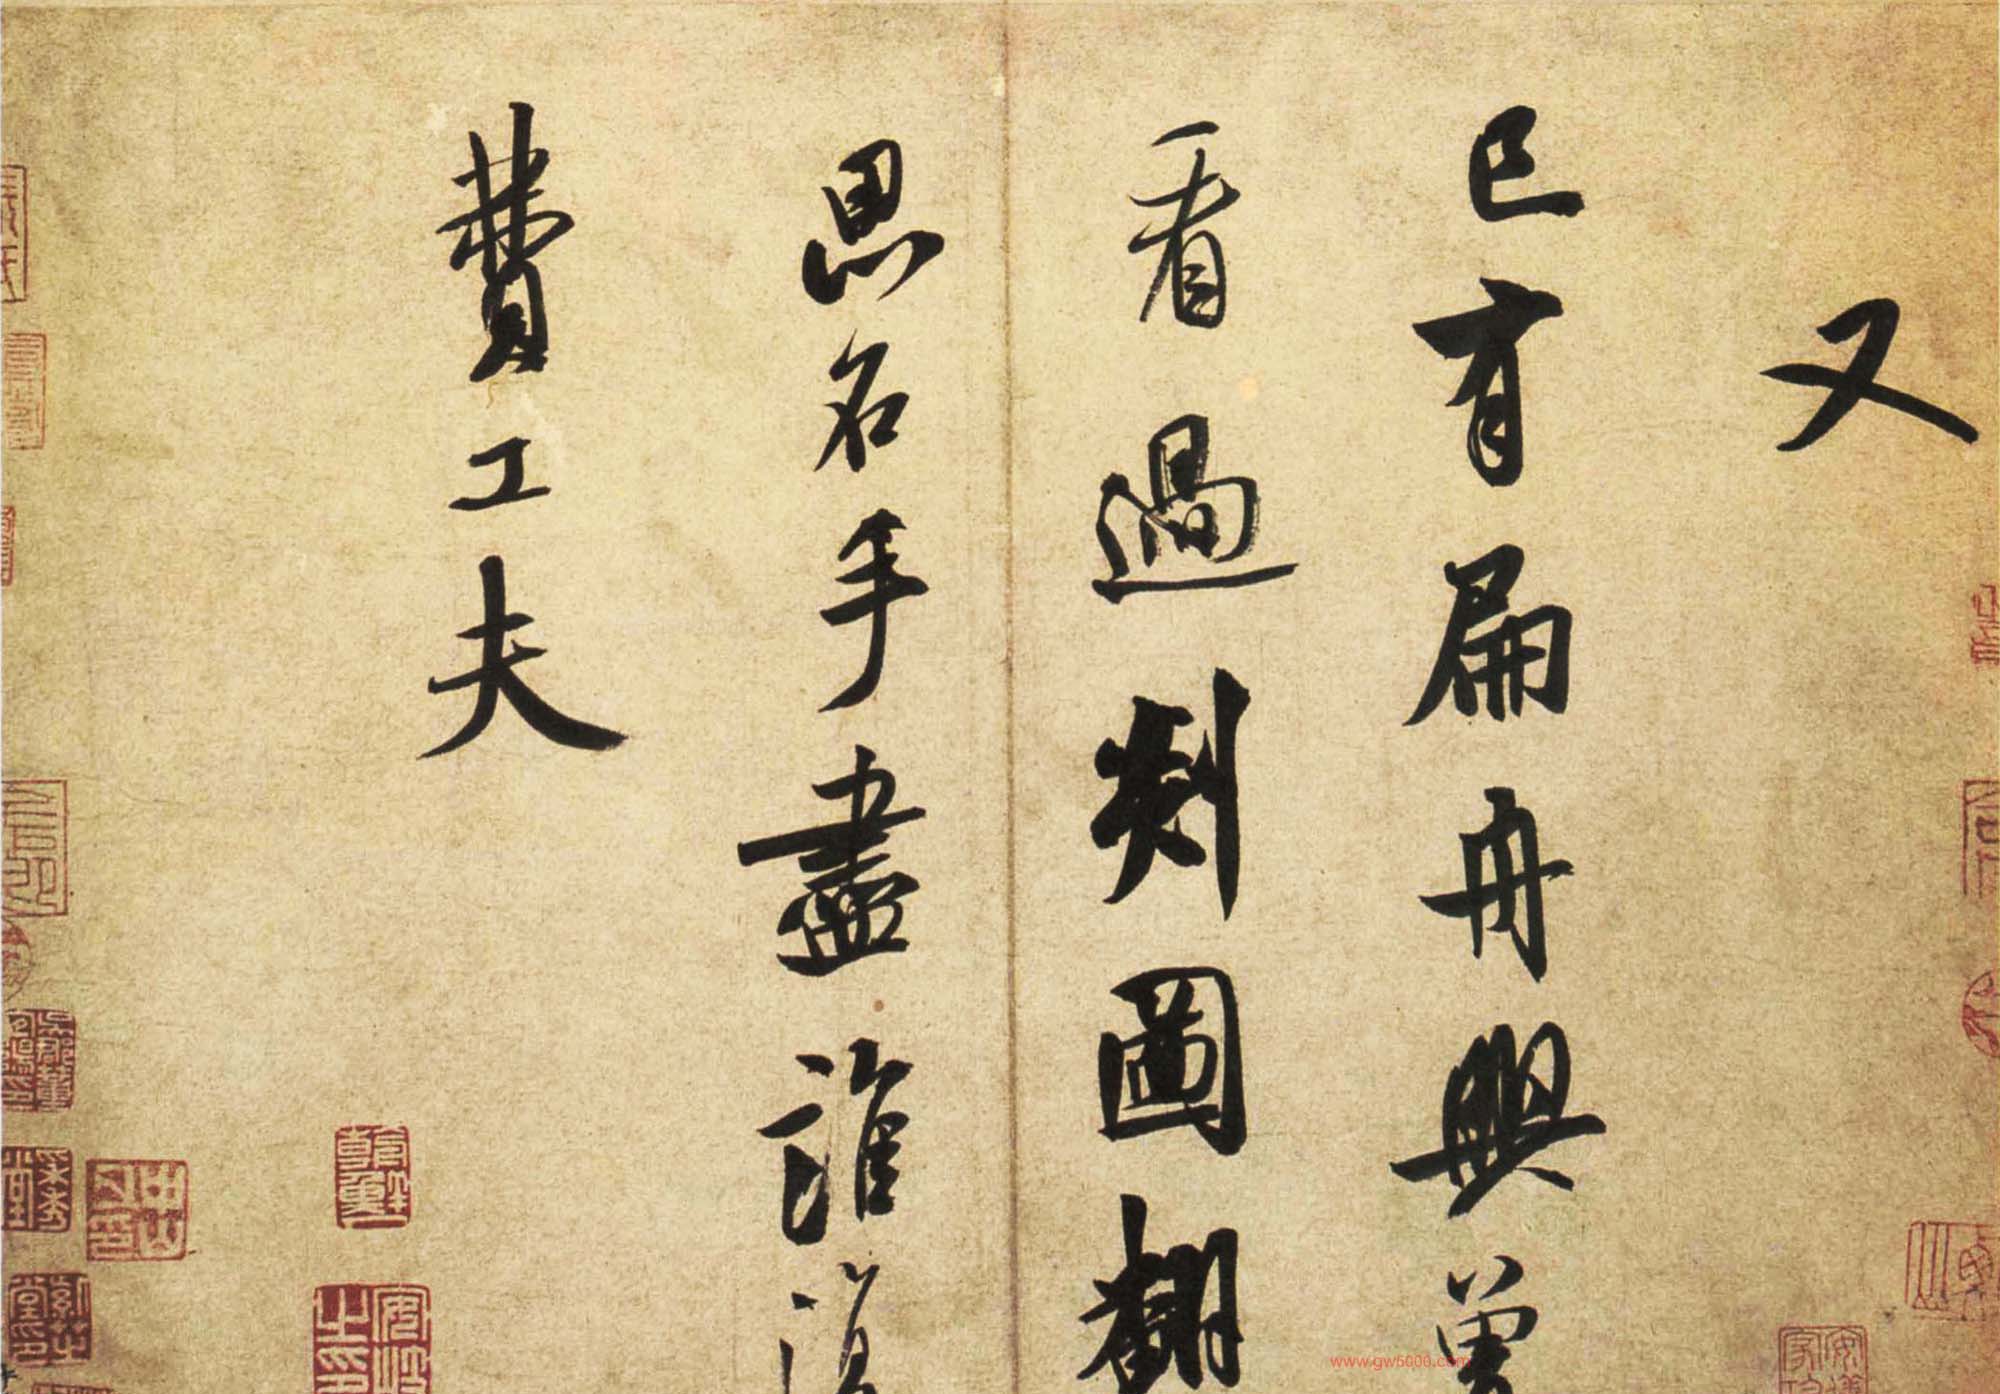 又
已有扁舟興曽
看過剡圖翻
思名手盡誰復
費工夫
www.gw5000.com